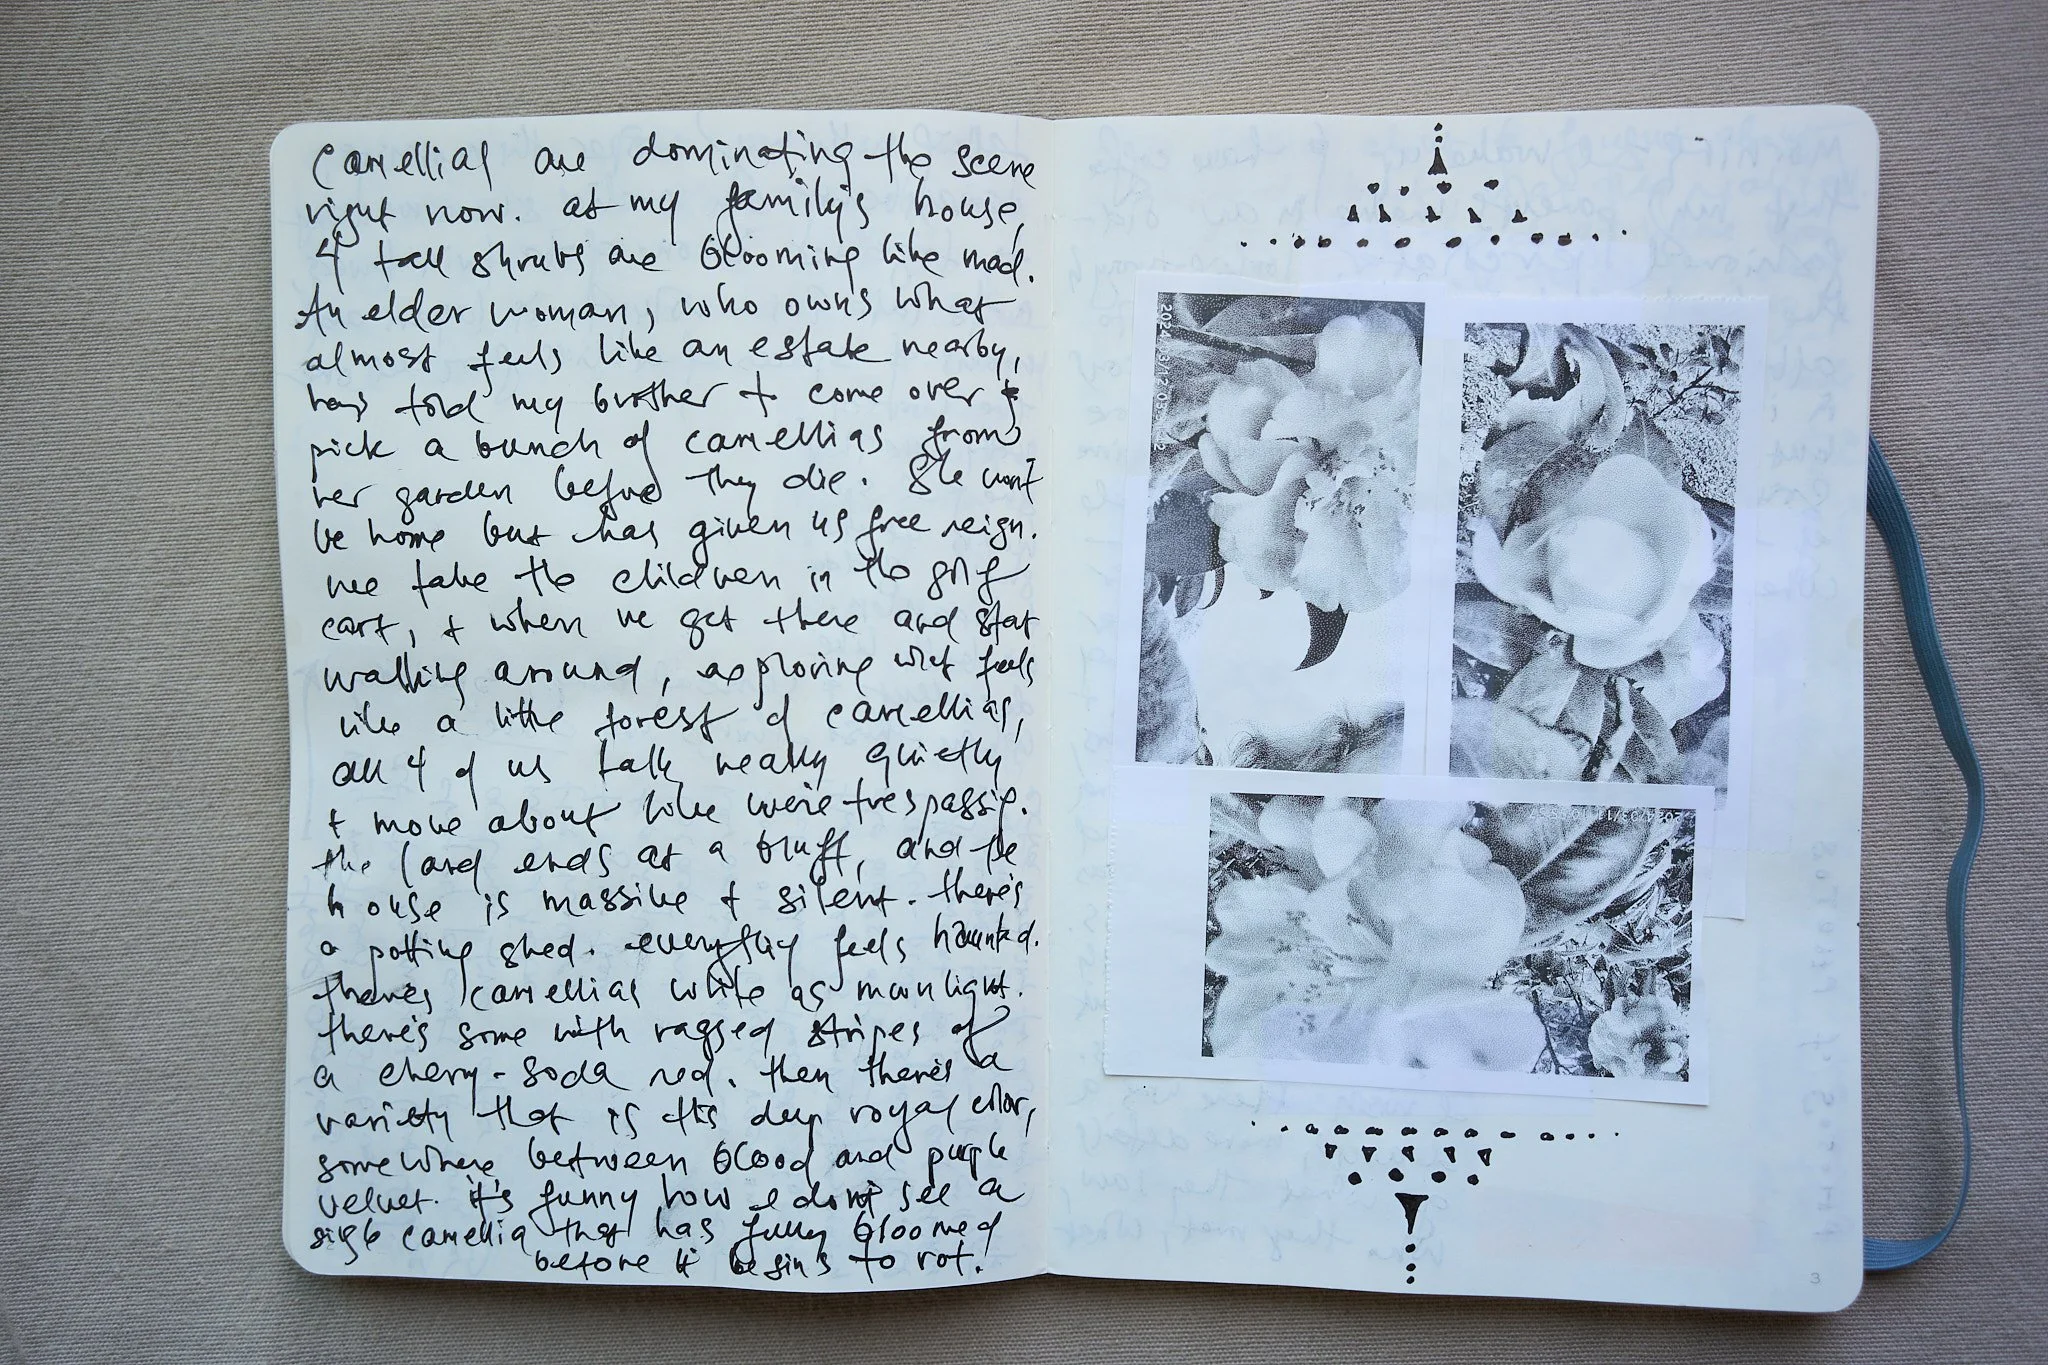 Camellias are dominating the scene
right now. at my family's house,
4 tall shrubs are blooming like mad.
An elder woman, who owns what
almost feels like an estate nearby,
has told my brother to come over &
pick a bunch of camellias from
her garden before they die. She won't
be home but has given us free reign.
we take the children in the golf
cart, + when we get there and start
walking around, exploring what feels
like a little forest of camellias,
all 4 of us talk really quietly
+ move about like we're trespassing.
the land ends at a bluff, and the
house is massive + silent. there's
a potting shed. everything feels haunted.
there's camellias white as moonlight.
there's some with ragged stripes of
a cherry-soda red. then there's a
variety that is this deep royal color,
somewhere between blood and purple
velvet. it's funny how I don't see a
single camellia that has fully bloomed
before it begins to rot.
3